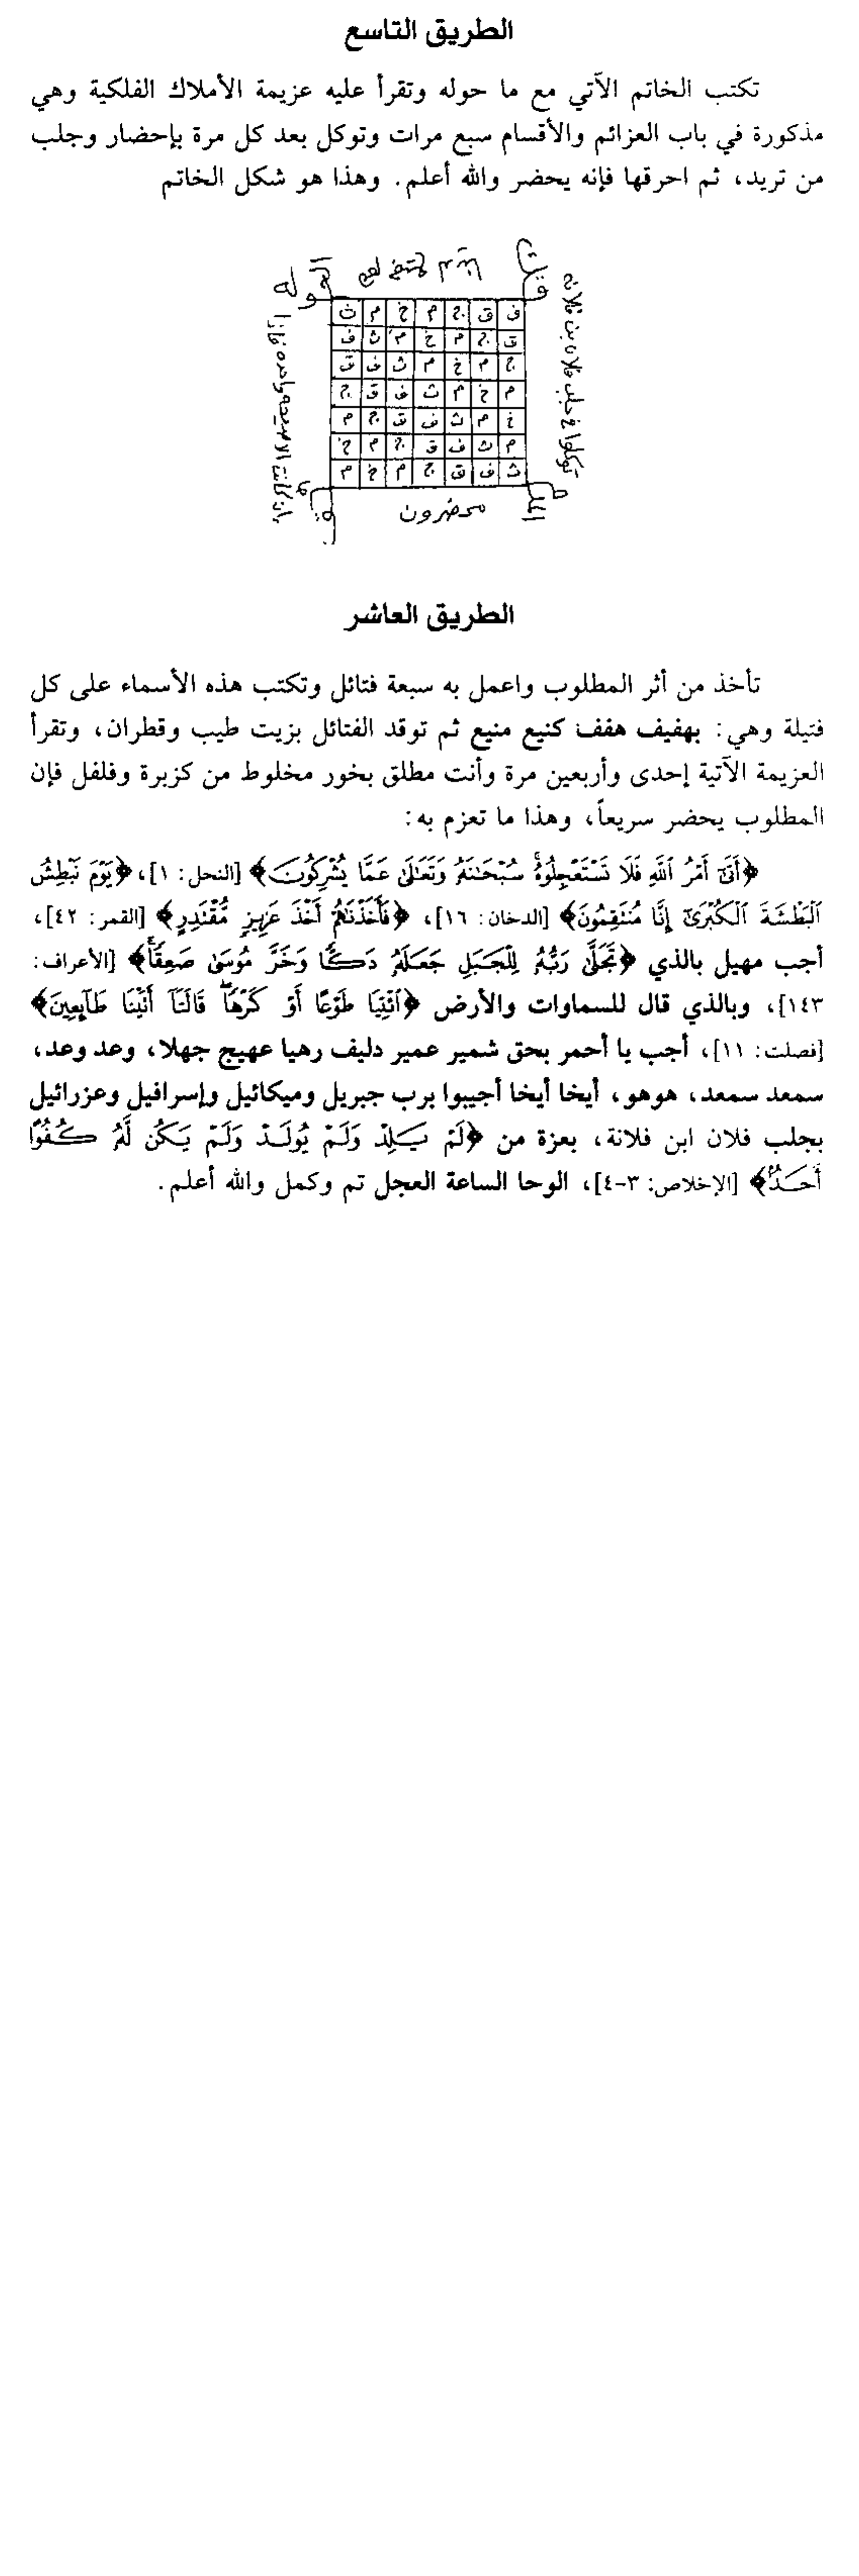 الطريق التاسع
تكتب الخاتم الآتي مع ما حوله وتقرأ عليه عزيمة الأملاك الفلكية وهي
مذكورة في باب العزائم والأقسام سبع مرات وتوكل بعد كل مرة بإحضار وجلب
من تريد، ثم احرقها فإنه يحضر والله أعلم. وهذا هو شكل الخاتم
توكلوا في جلب فلان بن فلانة
ان كانت الا صيحه واحده فاذا
ف ق ج م خ م ث
ق ج م خ م ث ف
ج م خ م ث ف ق
م خ م ث ف ق ج
خ م ث ف ق ج م
م ث ف ق ج م خ
ث ف ق ج م خ م
محضرون
الطريق العاشر
تأخذ من أثر المطلوب واعمل به سبعة فتائل وتكتب هذه الأسماء على كل
فتيلة وهي: بهفيف هفف كنيع منيع ثم توقد الفتائل بزيت طيب وقطران، وتقرأ
العزيمة الآتية إحدى وأربعين مرة وأنت مطلق بخور مخلوط من كزبرة وفلفل فإن
المطلوب يحضر سريعاً، وهذا ما تعزم به:
﴿أَتَىٰٓ أَمْرُ ٱللَّهِ فَلَا تَسْتَعْجِلُوهُۚ سُبْحَٰنَهُۥ وَتَعَٰلَىٰ عَمَّا يُشْرِكُونَ﴾ [النحل: ١]، ﴿يَوْمَ نَبْطِشُ
ٱلْبَطْشَةَ ٱلْكُبْرَىٰٓ إِنَّا مُنتَقِمُونَ﴾ [الدخان: ١٦]، ﴿فَأَخَذْنَٰهُمْ أَخْذَ عَزِيزٍ مُّقْتَدِرٍ﴾ [القمر: ٤٢]،
أجب مهيل بالذي ﴿تَجَلَّىٰ رَبُّهُۥ لِلْجَبَلِ جَعَلَهُۥ دَكًّا وَخَرَّ مُوسَىٰ صَعِقًاۚ﴾ [الأعراف:
١٤٣]، وبالذي قال للسماوات والأرض ﴿ٱئْتِيَا طَوْعًا أَوْ كَرْهًاۖ قَالَتَآ أَتَيْنَا طَآئِعِينَ﴾
[فصلت: ١١]، أجب يا أحمر بحق شمير عمير دليف رهيا عهيج جهلا، وعد وعد،
سمعد سمعد، هوهو، أيخا أيخا أجيبوا برب جبريل وميكائيل وإسرافيل وعزرائيل
بجلب فلان ابن فلانة، بعزة من ﴿لَمْ يَلِدْ وَلَمْ يُولَدْ وَلَمْ يَكُن لَّهُۥ كُفُوًا
أَحَدٌۢ﴾ [الإخلاص: ٣-٤]، الوحا الساعة العجل تم وكمل والله أعلم.